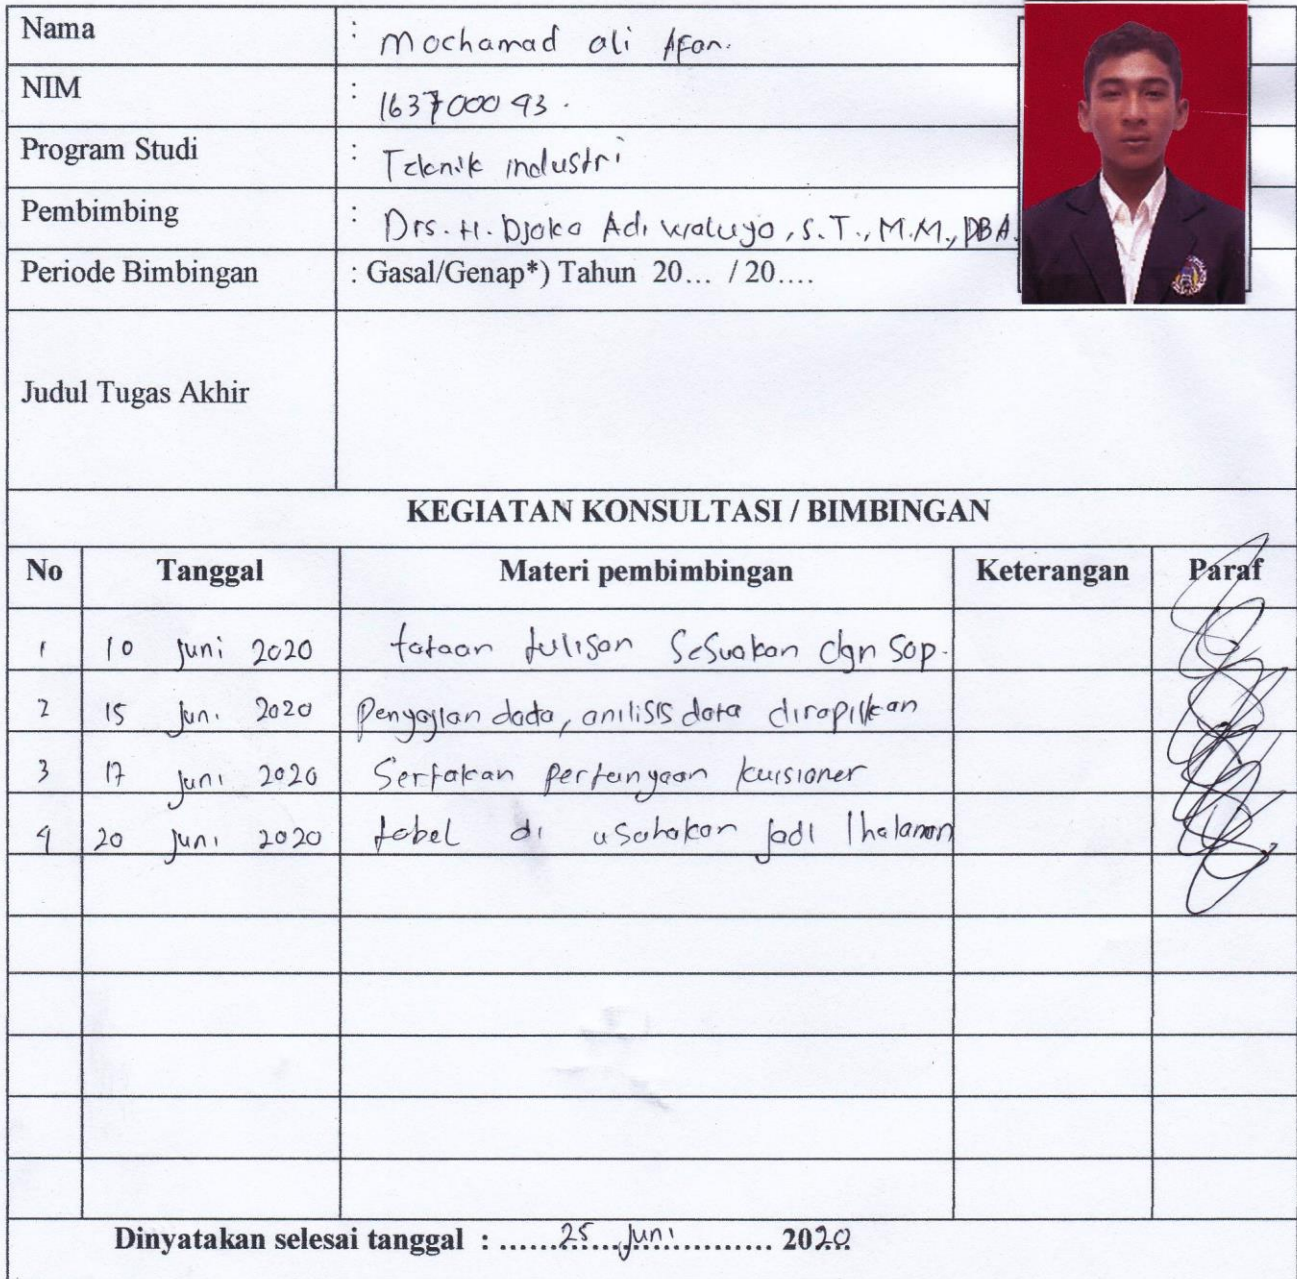 Nama : Mochamad ali Afan.
NIM : 163700093.
Program Studi : Teknik industri
Pembimbing : Drs. H. Djoko Adi waluyo, S.T., M.M., DBA.
Periode Bimbingan : Gasal/Genap*) Tahun 20... / 20....
Judul Tugas Akhir
KEGIATAN KONSULTASI / BIMBINGAN
No Tanggal Materi pembimbingan Keterangan Paraf
1 10 Juni 2020 tataan tulisan Sesuakan dgn Sop.
2 15 Juni 2020 Penyajian data, anilisis data dirapikan
3 17 Juni 2020 Sertakan pertanyaan kuisioner
4 20 Juni 2020 tabel di usahakan jadi 1halaman
Dinyatakan selesai tanggal : ......25...Juni............. 2020